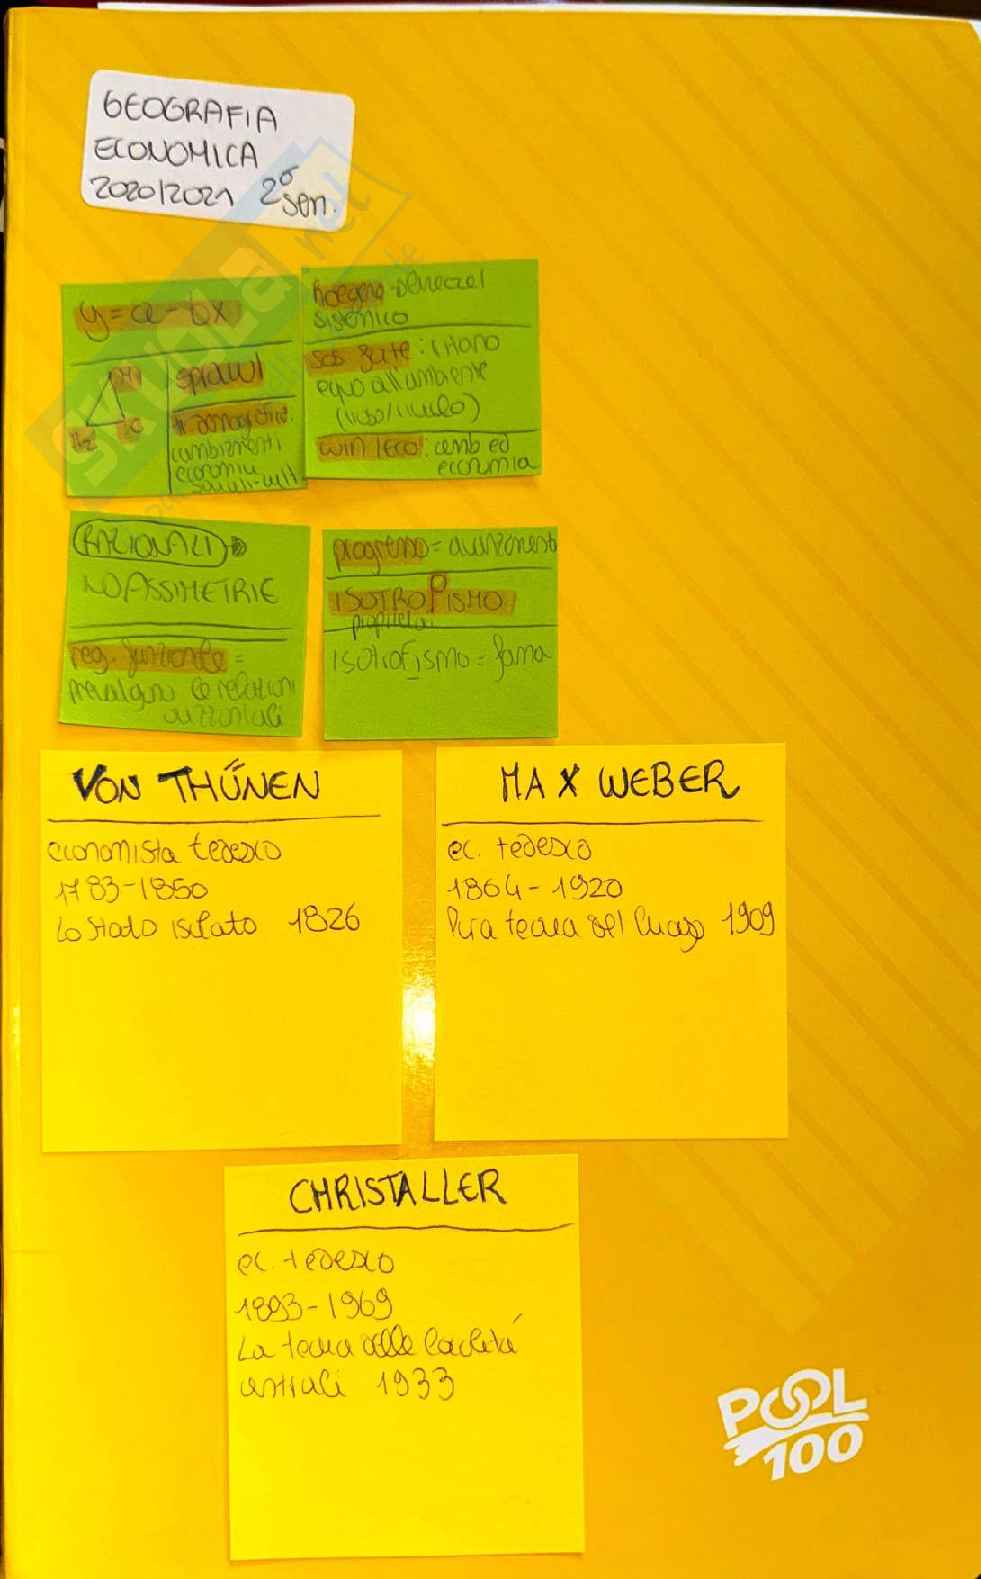 GEOGRAFIA
ECONOMICA
2020/2021 2° sem.
y = a - bx
sprawl
cambiamenti
sistemico
sos gate: ritorno
equo all'ambiente
win/eco: amb ed
economia
RAZIONALI
NO ASSIMETRIE
reg. funzionale =
prevalgono le relazioni
orizzontali
progresso = avanzamento
ISOTROPISMO
proprietà
isotrofismo = fama
VON THŰNEN
economista tedesco
1783-1850
Lo stato isolato 1826
MAX WEBER
ec. tedesco
1864-1920
Pura teoria del luogo 1909
CHRISTALLER
ec. tedesco
1893-1969
La teoria delle località
centrali 1933
POOL
100
skuola.net